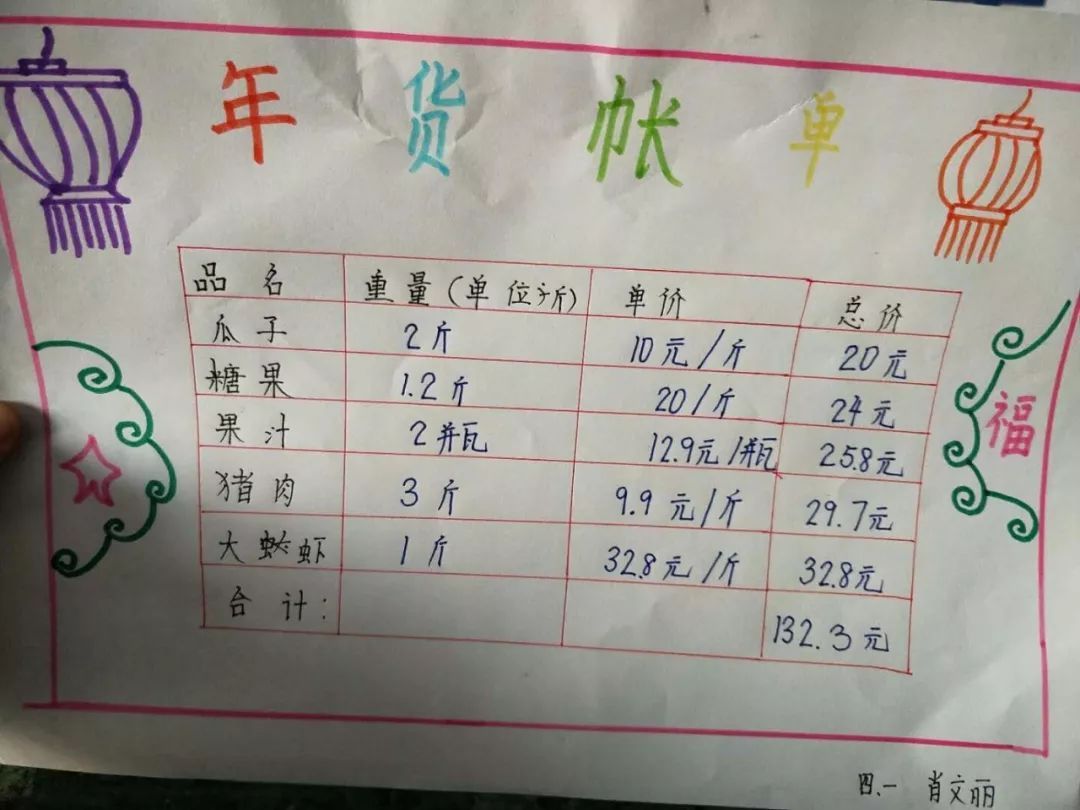 年货帐单
品名 重量(单位斤) 单价 总价
瓜子 2斤 10元/斤 20元
糖果 1.2斤 20/斤 24元
果汁 2瓶 12.9元/瓶 25.8元
猪肉 3斤 9.9元/斤 29.7元
大虾 1斤 32.8元/斤 32.8元
合计: 132.3元
福
四.一 肖文丽